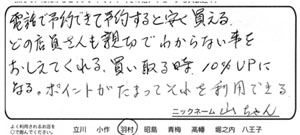 電話で予約できて予約すると安く買える。
どの店員さんも親切でわからない事を
おしえてくれる。買い取る時、10%UPに
なる。ポイントがたまってそれを利用できる
ニックネーム 山ちゃん
よく利用されるお店を○で囲んでください。
立川 小作 羽村 昭島 青梅 高幡 堀之内 八王子